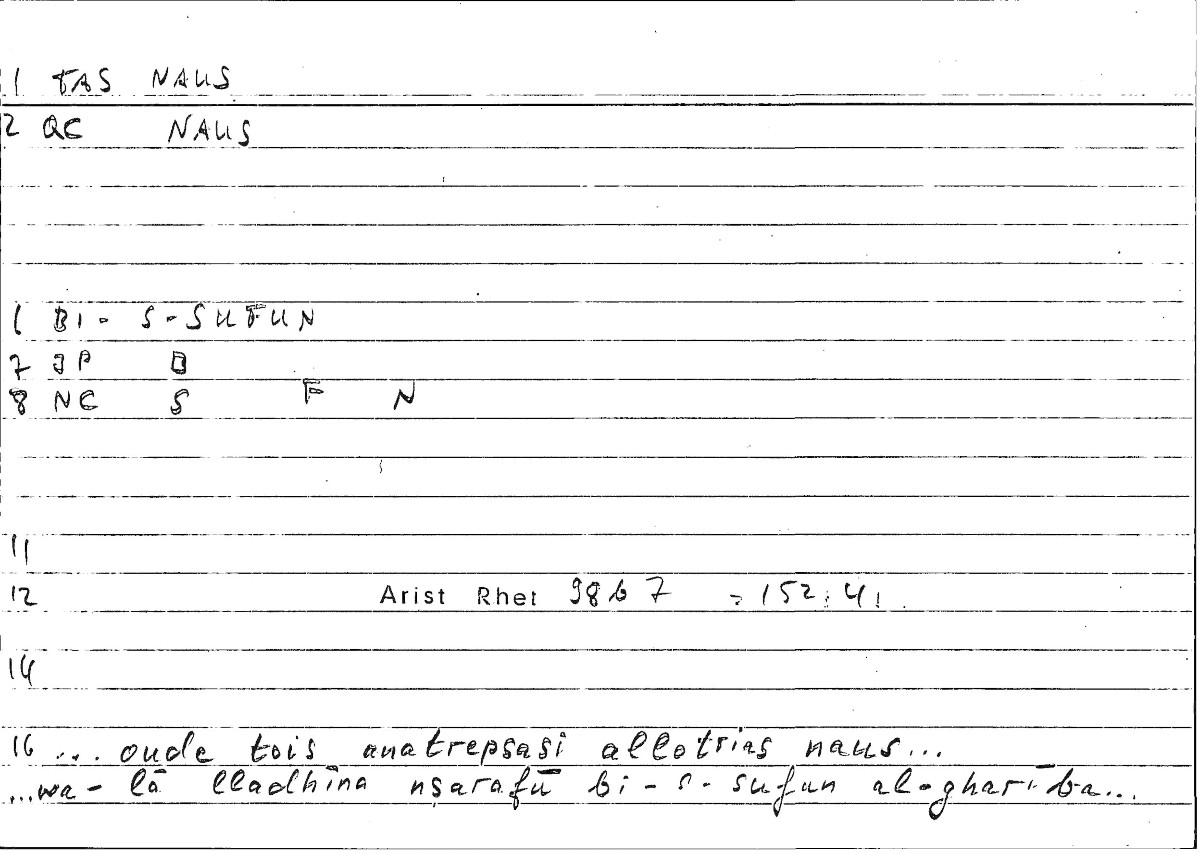 1 TAS NAUS
2 QC NAUS
1 BI- S-SUFUN
7 JP B
8 NC S F N
11
12 Arist Rhet 98b7 = 152,4
14
16 ... oude tois anatrepsasi allotrias naus...
...wa-lā lladhīna nṣarafū bi-s-sufun al-gharība...